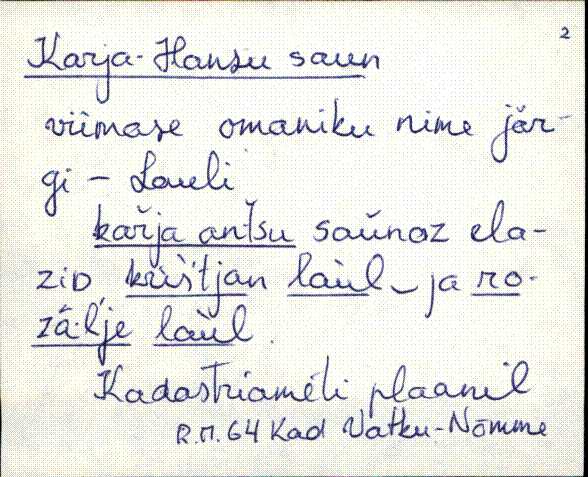 2
Karja-Hansu saun
viimase omaniku nime jär-
gi – Lauli
kařja an̆tsu saŭnoz ela-
zid, kriśtjan laùl – ja ro-
zā́lje laùl.
Kadastriameti plaanil
R.M. 64 Kad Vatku-Nõmme